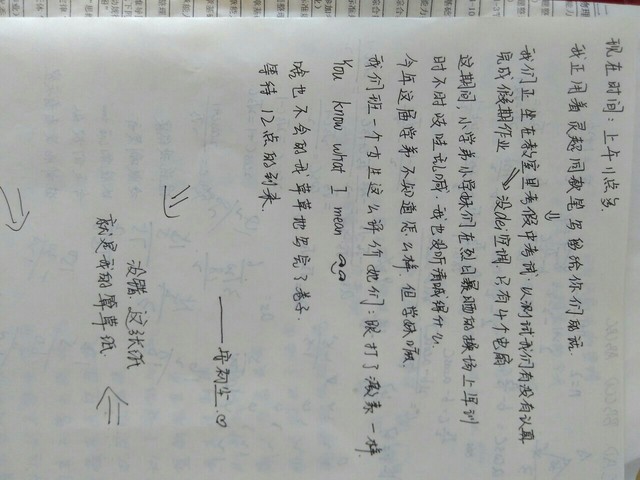 现在时间：上午11点多.
我正用着灵超同款笔写给你们的话.
我们正坐在教室里考假中考试,以测试我们有没有认真
完成假期作业 没dei空调.只有4个电扇
这期间.小学弟小学妹们在烈日暴晒的操场上军训
时不时吱哇乱喊.我也没听清喊得什么.
今年这届学弟不知道怎么样.但学妹嘛.
我们班一个女生这么评价她们:跟打了激素一样.
You know what I mean
啥也不会的我草草地写完了卷子.
等待12点的到来.
没错.这张纸
就是我的演草纸.